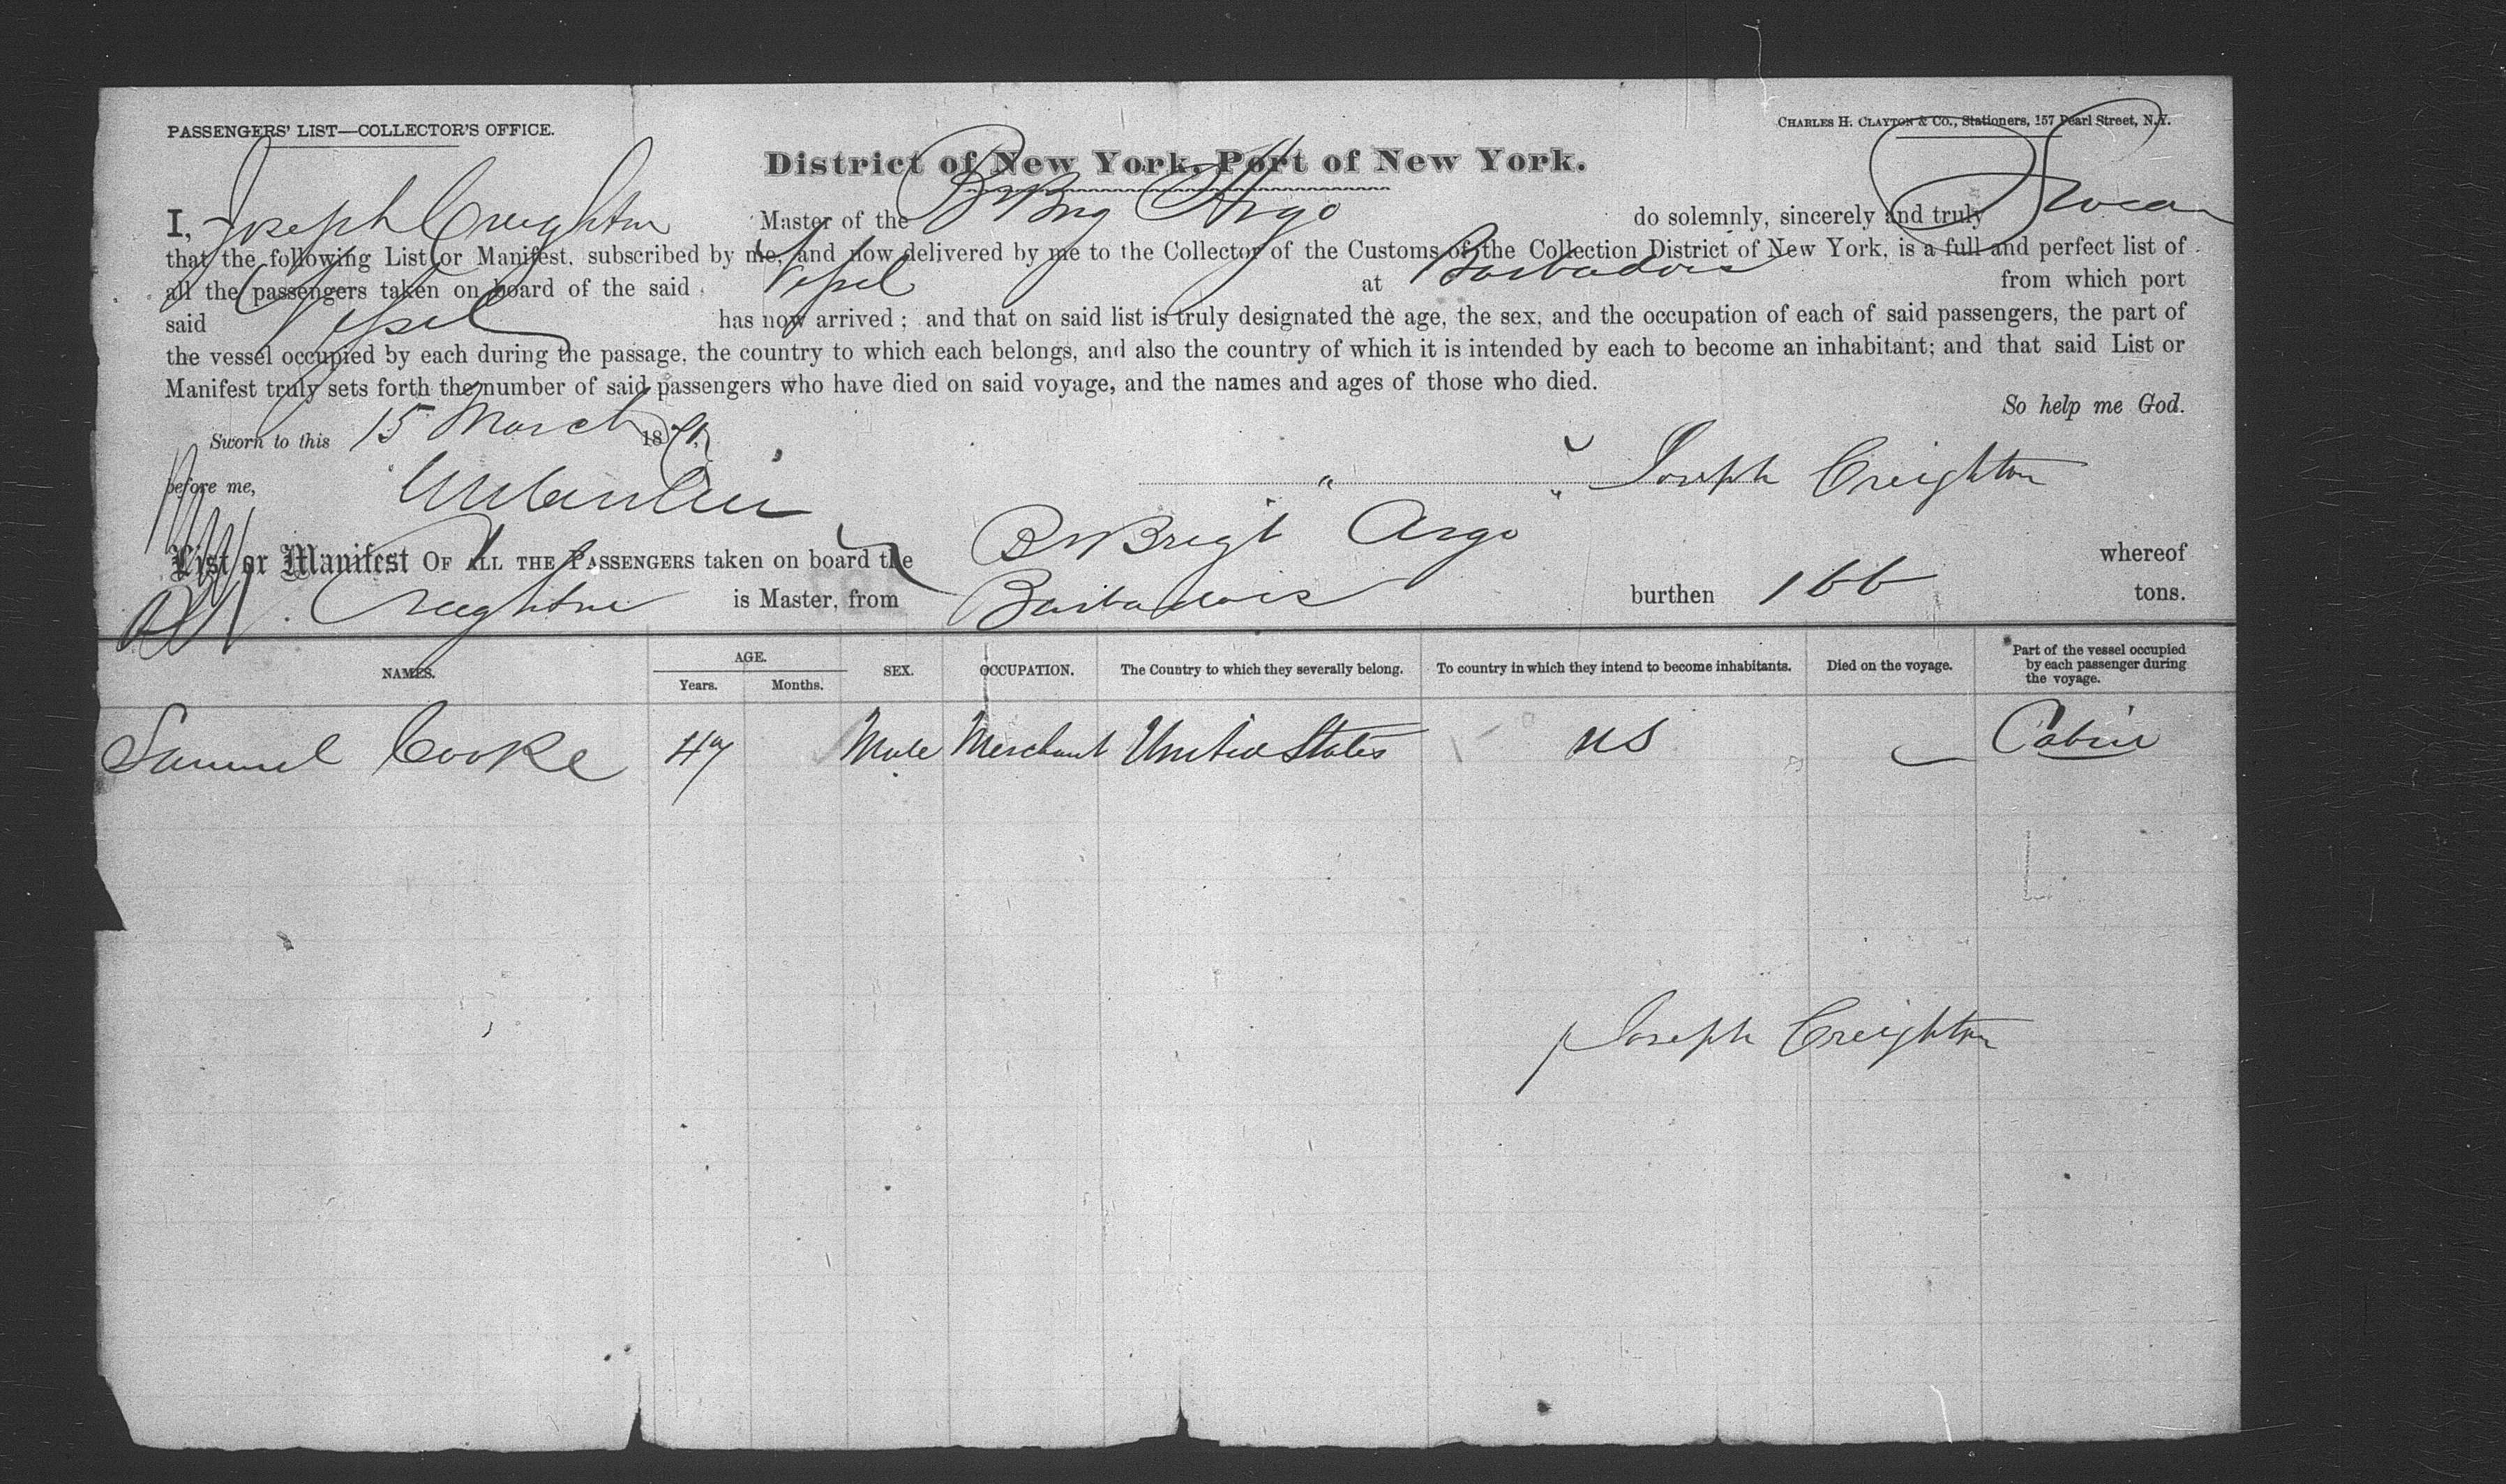 PASSENGERS' LIST—COLLECTOR'S OFFICE.
CHARLES H. CLAYTON & CO., Stationers, 157 Pearl Street, N.Y.
District of New York, Port of New York.
I, Joseph Creighton Master of the Br Brig Argo do solemnly, sincerely and truly Swear
that the following List or Manifest, subscribed by me, and now delivered by me to the Collector of the Customs of the Collection District of New York, is a full and perfect list of
all the passengers taken on board of the said Vessel at Barbadoes from which port
said Vessel has now arrived; and that on said list is truly designated the age, the sex, and the occupation of each of said passengers, the part of
the vessel occupied by each during the passage, the country to which each belongs, and also the country of which it is intended by each to become an inhabitant; and that said List or
Manifest truly sets forth the number of said passengers who have died on said voyage, and the names and ages of those who died.
So help me God.
Sworn to this 15 March 18
before me, Joseph Creighton
List or Manifest OF ALL THE PASSENGERS taken on board the Br Brigt Argo whereof
Creighton is Master, from Barbadoes burthen 166 tons.
NAMES. AGE. Years. Months. SEX. OCCUPATION. The Country to which they severally belong. To country in which they intend to become inhabitants. Died on the voyage. Part of the vessel occupied by each passenger during the voyage.
Samuel Cooke 47 Male Merchant United States US Cabin
Joseph Creighton